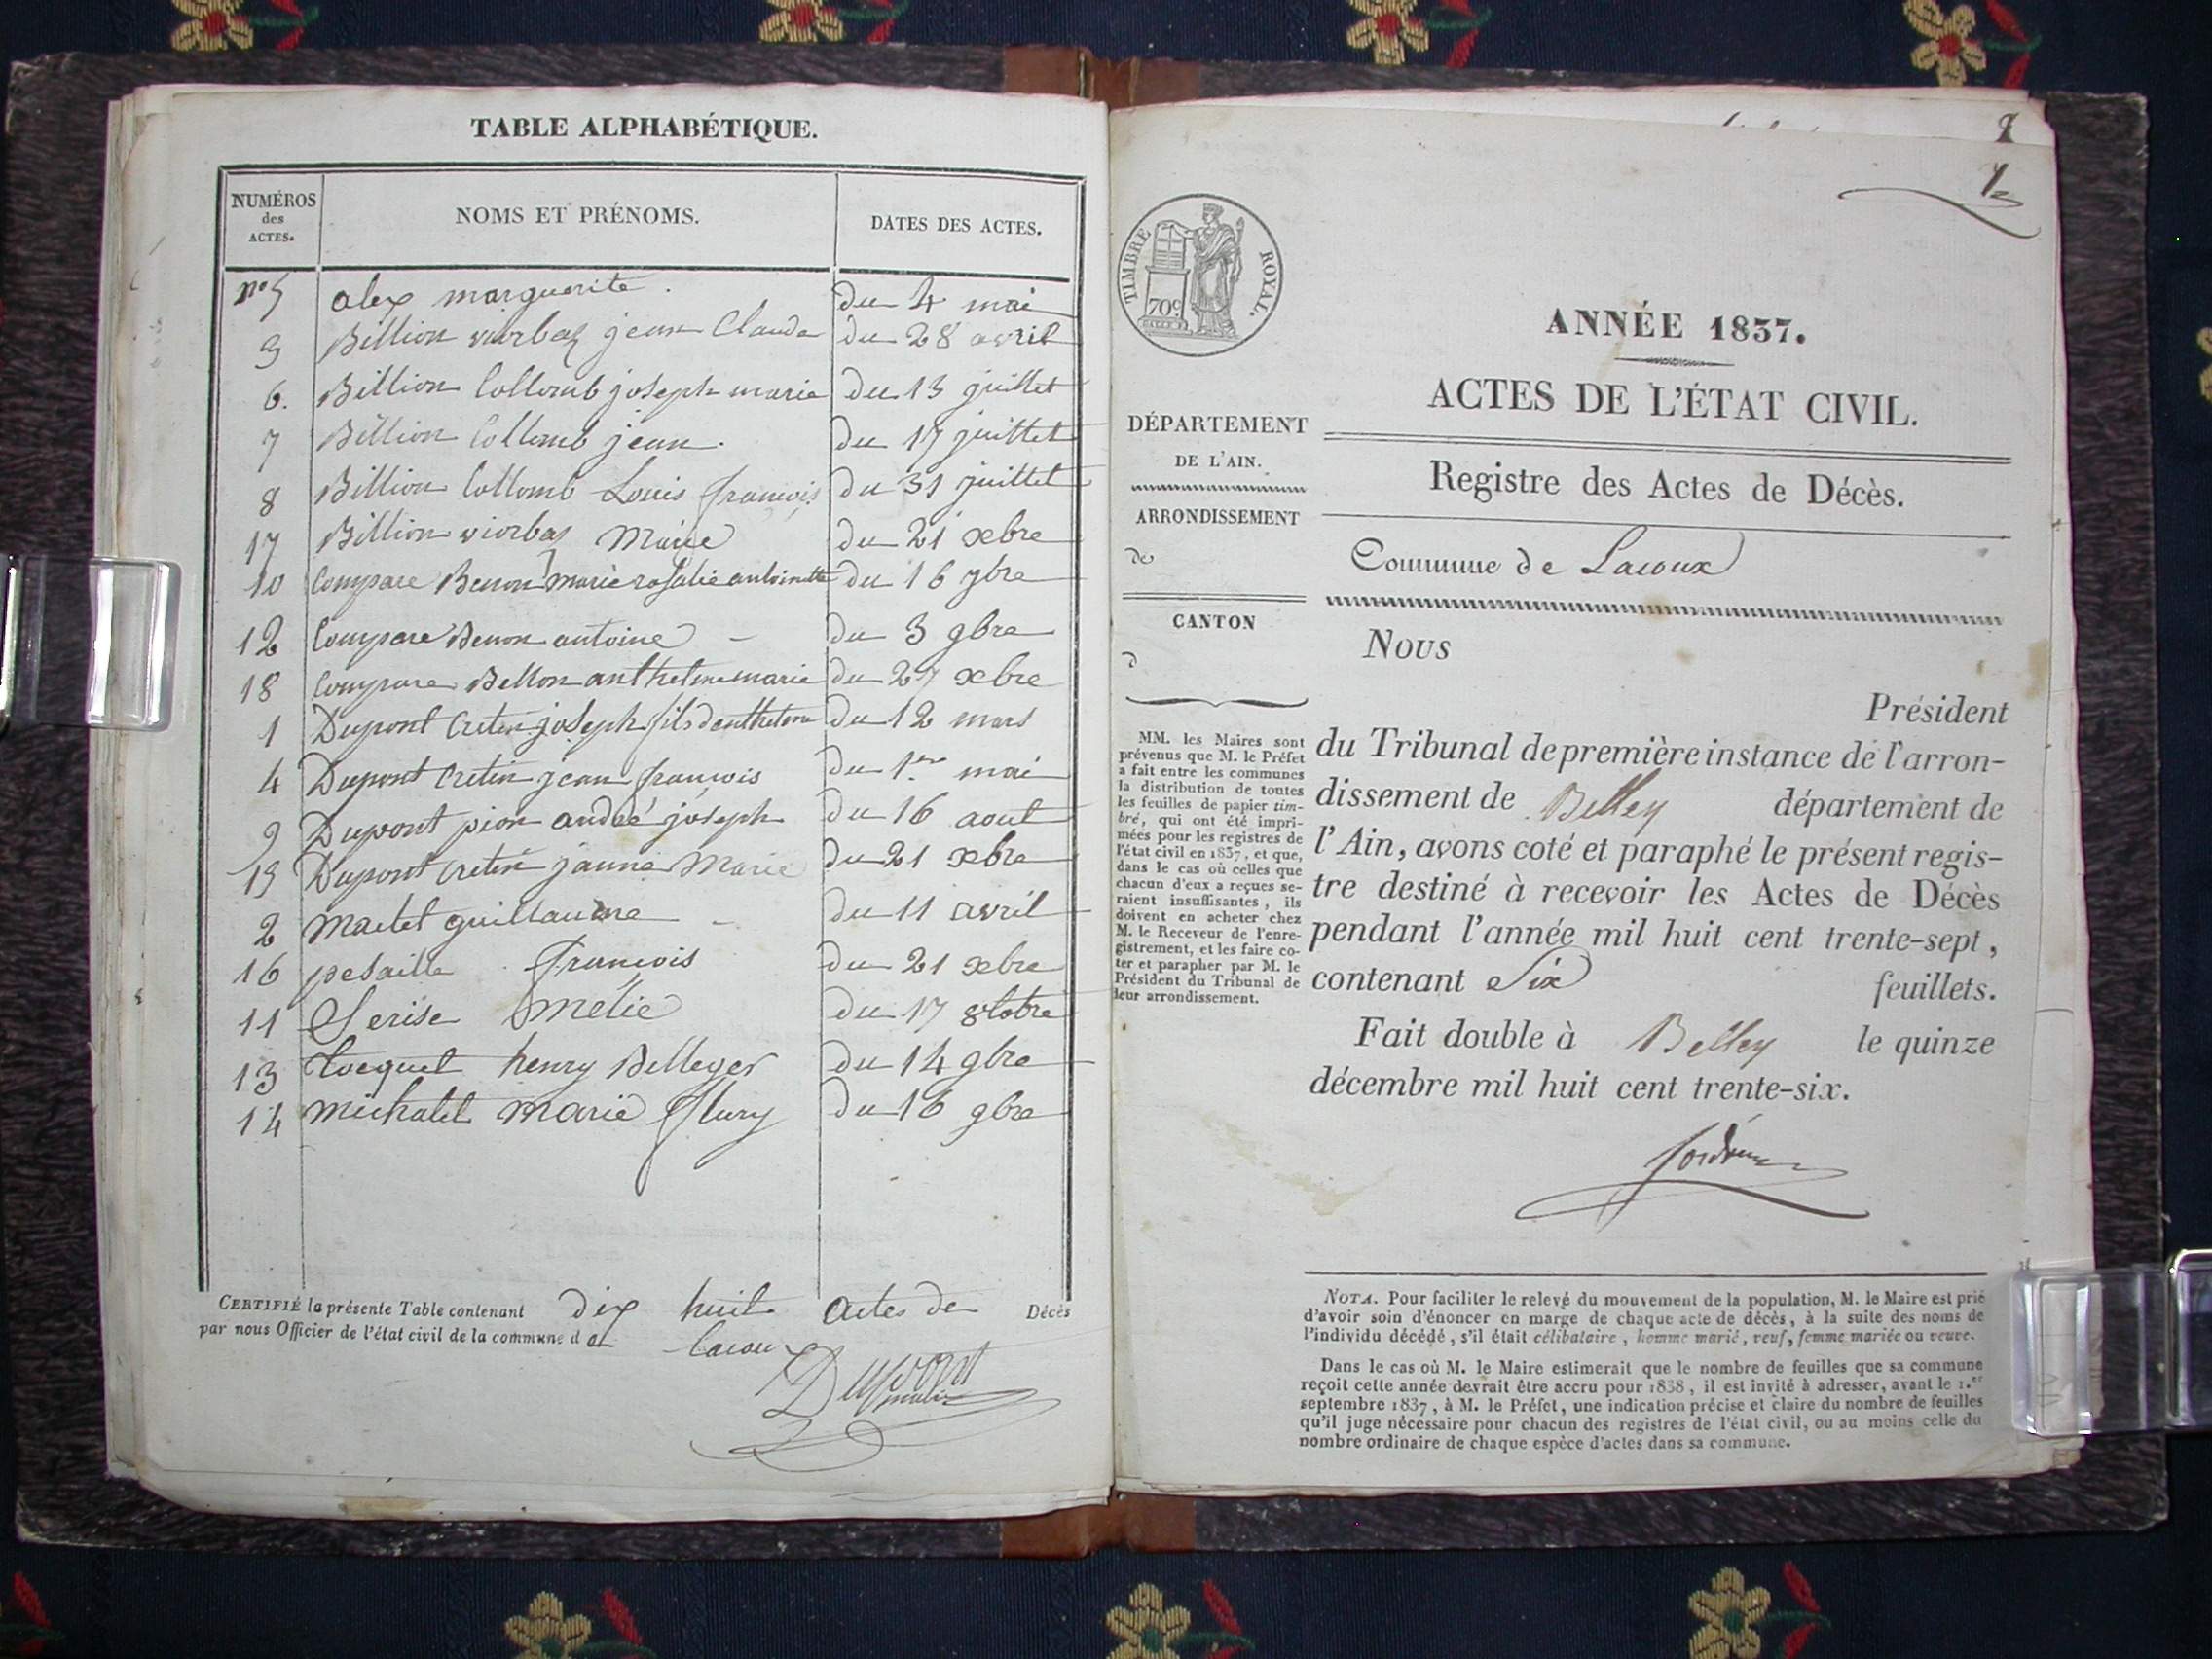 TABLE ALPHABÉTIQUE.
NUMÉROS des ACTES. NOMS ET PRÉNOMS. DATES DES ACTES.
nº 5 alex marguerite. du 4 mai
3 Billion viorbaz jean Claude du 28 avril
6. Billion Collomb joseph marie du 13 juillet
7 Billion Collomb jean. du 17 juillet
8 Billion Collomb Louis françois du 31 juillet
17 Billion viorbaz Marie du 21 xbre
10 Compare Benon marie rosalie antoinette du 16 7bre
12 Compare Benon antoine du 3 9bre
18 Compare Bellon anthelme marie du 27 xbre
1 Dupont Cretin joseph fils danthelme du 12 mars
4 Dupont Cretin jean françois du 1er mai
9 Dupont pion andré joseph du 16 aout
15 Dupont Cretin janne Marie du 21 xbre
2 Martel guillaume du 11 avril
16 pesaille françois du 21 xbre
11 Serise Mélie du 17 8tobre
13 Cocquet henry Belleger du 14 9bre
14 michalet marie flury du 16 9bre
CERTIFIÉ la présente Table contenant dix huit actes de Décès
par nous Officier de l'état civil de la commune de lacoux
Dupont
TIMBRE ROYAL.
70c
ANNÉE 1837.
ACTES DE L'ÉTAT CIVIL.
DÉPARTEMENT
DE L'AIN.
ARRONDISSEMENT
de
CANTON
d
MM. les Maires sont
prévenus que M. le Préfet
a fait entre les communes
la distribution de toutes
les feuilles de papier tim-
bré, qui ont été impri-
mées pour les registres de
l'état civil en 1837, et que,
dans le cas où celles que
chacun d'eux a reçues se-
raient insuffisantes, ils
doivent en acheter chez
M. le Receveur de l'enre-
gistrement, et les faire co-
ter et parapher par M. le
Président du Tribunal de
leur arrondissement.
Registre des Actes de Décès.
Commune de Lacoux
Nous
Président
du Tribunal de première instance de l'arron-
dissement de Belley département de
l'Ain, avons coté et paraphé le présent regis-
tre destiné à recevoir les Actes de Décès
pendant l'année mil huit cent trente-sept,
contenant Six feuillets.
Fait double à Belley le quinze
décembre mil huit cent trente-six.
NOTA. Pour faciliter le relevé du mouvement de la population, M. le Maire est prié
d'avoir soin d'énoncer en marge de chaque acte de décès, à la suite des noms de
l'individu décédé, s'il était célibataire, homme marié, veuf, femme mariée ou veuve.
Dans le cas où M. le Maire estimerait que le nombre de feuilles que sa commune
reçoit cette année devrait être accru pour 1838, il est invité à adresser, avant le 1.er
septembre 1837, à M. le Préfet, une indication précise et claire du nombre de feuilles
qu'il juge nécessaire pour chacun des registres de l'état civil, ou au moins celle du
nombre ordinaire de chaque espèce d'actes dans sa commune.